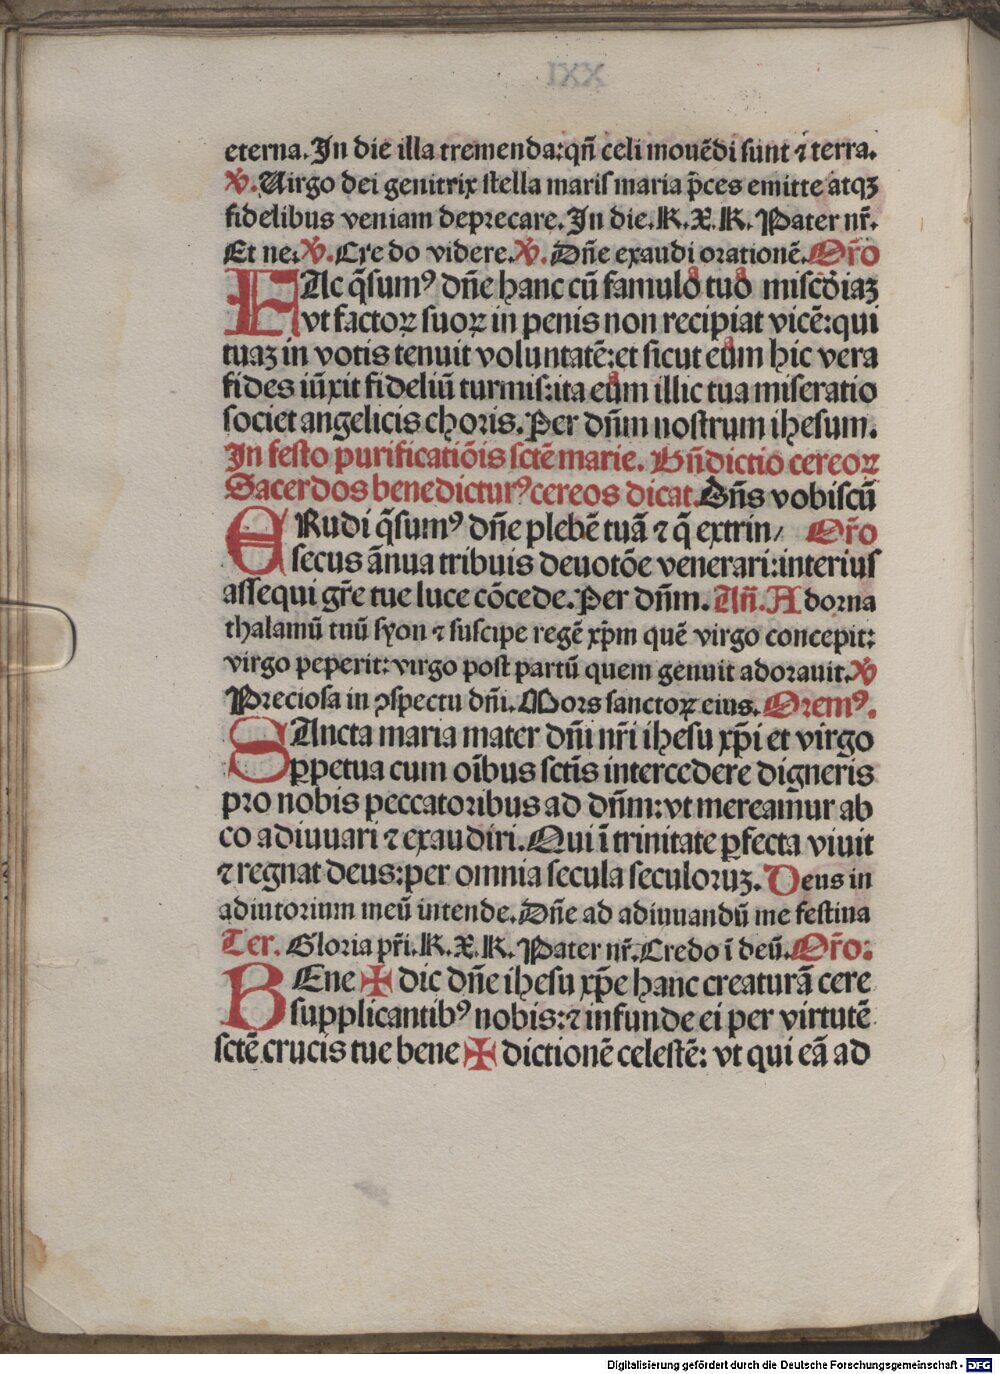 eterna. In die illa tremenda: qn̄ celi mouēdi sunt ⁊ terra.
℣. Uirgo dei genitrix stella maris maria p̄ces emitte atqꝫ
fidelibus veniam deprecare. In die. K. X. K. Pater nr̄.
Et ne: ℣. Cre do videre. ℣. Dn̄e exaudi orationē. Or̄o
FAc q̄sumꝰ dn̄e hanc cū famulo tuo miscd̓iaꝫ
vt factoꝝ suoꝝ in penis non recipiat vicē: qui
tuaꝫ in votis tenuit voluntatē: et sicut eum hic vera
fides iūxit fideliū turmis: ita eum illic tua miseratio
societ angelicis choris. Per dn̄m nostrum ihesum.
In festo purificatiōis sctē marie. Bn̄dictio cereoꝝ
Sacerdos benedicturꝰ cereos dicat. Dn̄s vobiscū
ERudi q̄sumꝰ dn̄e plebē tuā ⁊ q̄ extrin/ Or̄o
secus ānua tribuis deuotōe venerari: interius
assequi gr̄e tue luce cōcede. Per dn̄m. An̄. Adorna
thalamū tuū syon ⁊ suscipe regē xp̄m quē virgo concepit:
virgo peperit: virgo post partū quem genuit adorauit. ℣
Preciosa in ꝯspectu dn̄i. Mors sanctoꝝ eius. Oremꝰ.
SAncta maria mater dn̄i nr̄i ihesu xp̄i et virgo
ꝑpetua cum oībus sctīs intercedere digneris
pro nobis peccatoribus ad dn̄m: vt mereamur ab
eo adiuuari ⁊ exaudiri. Qui ī trinitate ꝑfecta viuit
⁊ regnat deus: per omnia secula seculoruꝫ. Deus in
adiutorium meū intende. Dn̄e ad adiuuandū me festina
Ter. Gloria pr̄i. K. X. K. Pater nr̄. Credo ī deū. Or̄o:
BEne ✠ dic dn̄e ihesu xp̄e hanc creaturā cere
supplicantibꝰ nobis: ⁊ infunde ei per virtutē
sctē crucis tue bene ✠ dictionē celestē: vt qui eā ad
Digitalisierung gefördert durch die Deutsche Forschungsgemeinschaft - DFG